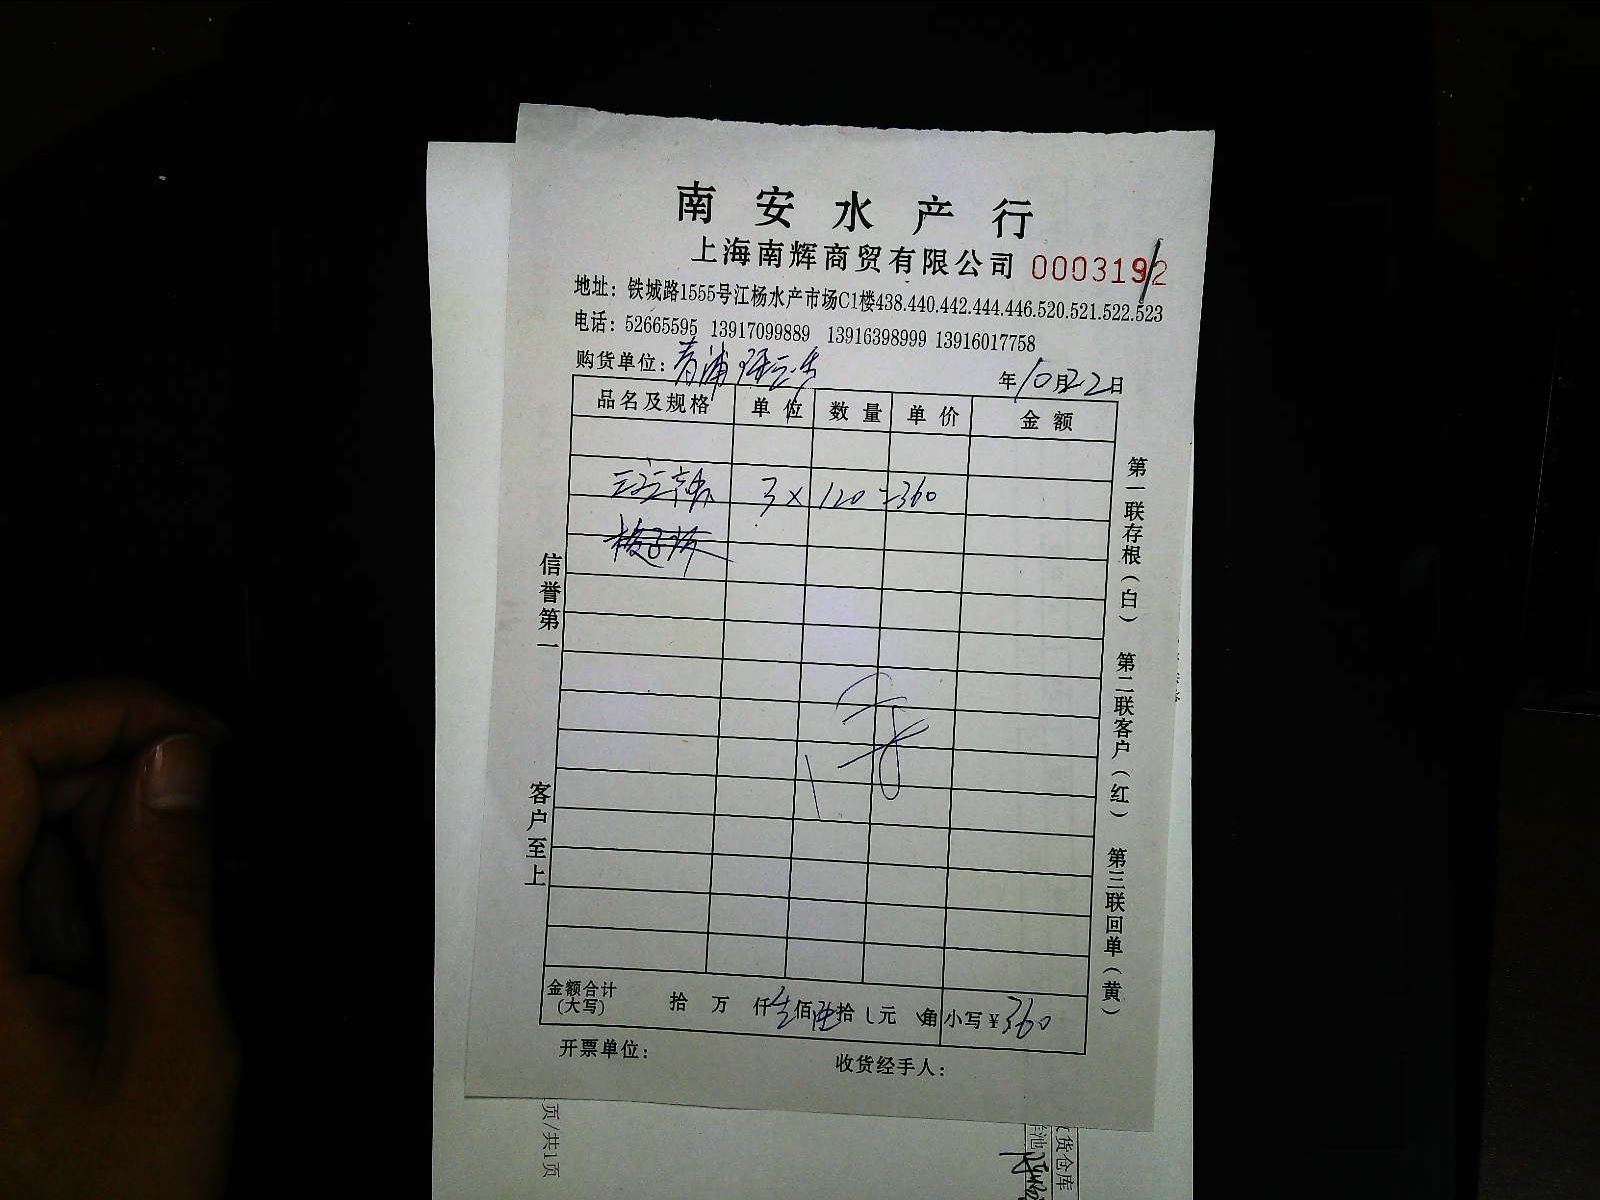 南安水产行
上海南辉商贸有限公司 0003192
地址：铁城路1555号江杨水产市场C1楼438.440.442.444.446.520.521.522.523
电话：52665595 13917099889 13916398999 13916017758
购货单位：青浦
年10月22日
品名及规格 单位 数量 单价 金额
3×120=360
金额合计(大写) 拾 万 仟叁佰陆拾 元 角 小写￥360
开票单位： 收货经手人：
信誉第一 客户至上
第一联存根(白) 第二联客户(红) 第三联回单(黄)
页/共1页
货仓库